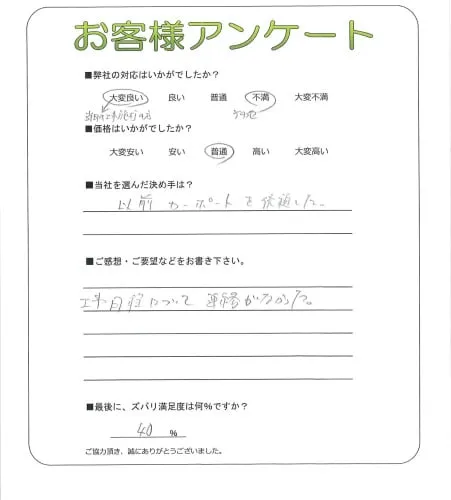 お客様アンケート
■弊社の対応はいかがでしたか？
大変良い 良い 普通 不満 大変不満
■価格はいかがでしたか？
大変安い 安い 普通 高い 大変高い
■当社を選んだ決め手は？
以前カーポートを依頼した。
■ご感想・ご要望などをお書き下さい。
工事日程について連絡がなかった。
■最後に、ズバリ満足度は何％ですか？
40 %
ご協力頂き、誠にありがとうございました。